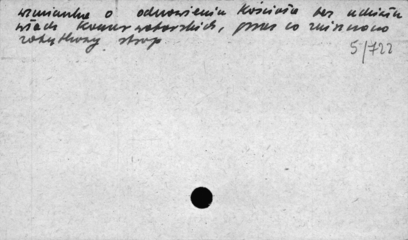 wzmianka o odnowieniu kościoła bez udziału
władz konserwatorskich, przez co zniszczono
zabytkowy strop
5/722